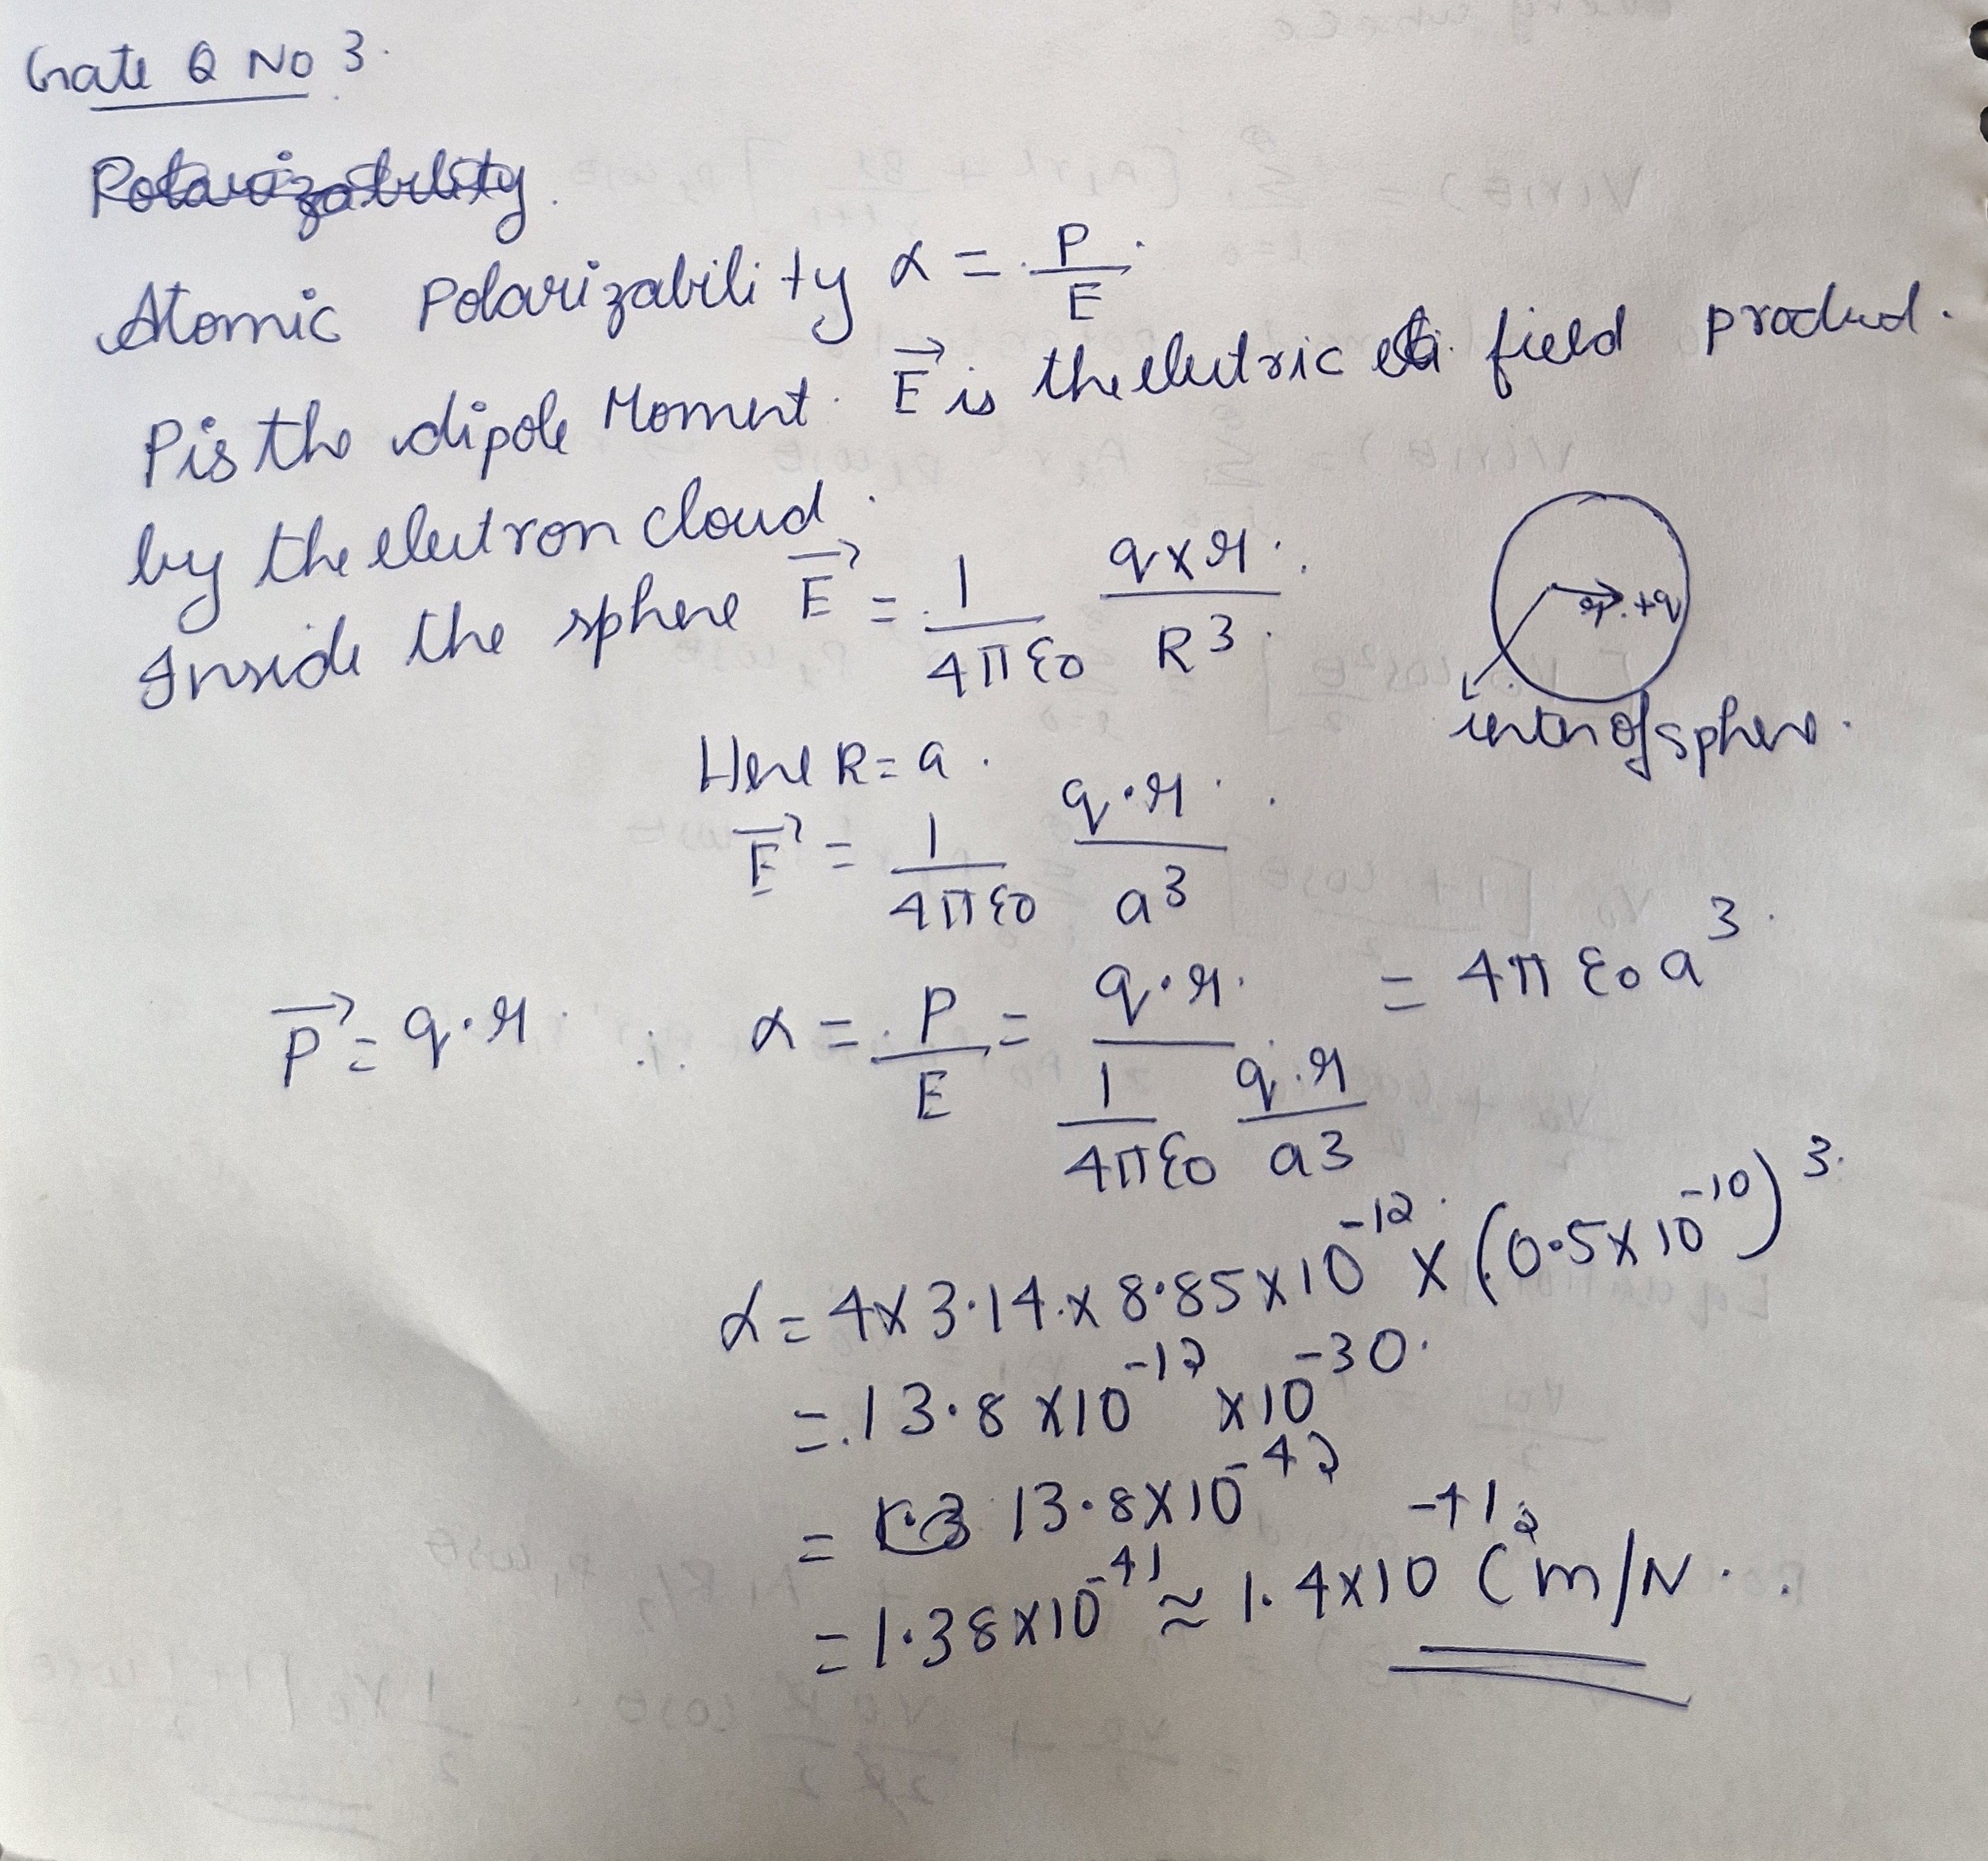 Gate Q No 3.
Polarizability.
Atomic Polarizability α = P/E.
P is the dipole Moment. E⃗ is the electric field produd.
by the electron cloud.
Inside the sphere E⃗ = 1/4πε0 q×r/R^3.
r. +q
of sphere.
Here R = a.
E⃗ = 1/4πε0 q·r/a^3
P⃗ = q·r ∴ α = P/E = q·r/(1/4πε0 q·r/a3) = 4πε0a^3.
α = 4×3.14×8.85×10^-12 × (0.5×10^-10)^3.
= 13.8×10^-12 ×10^-30.
= 13.8×10^-42
= 1.38×10^-41 ≈ 1.4×10^-41 C^2m/N.